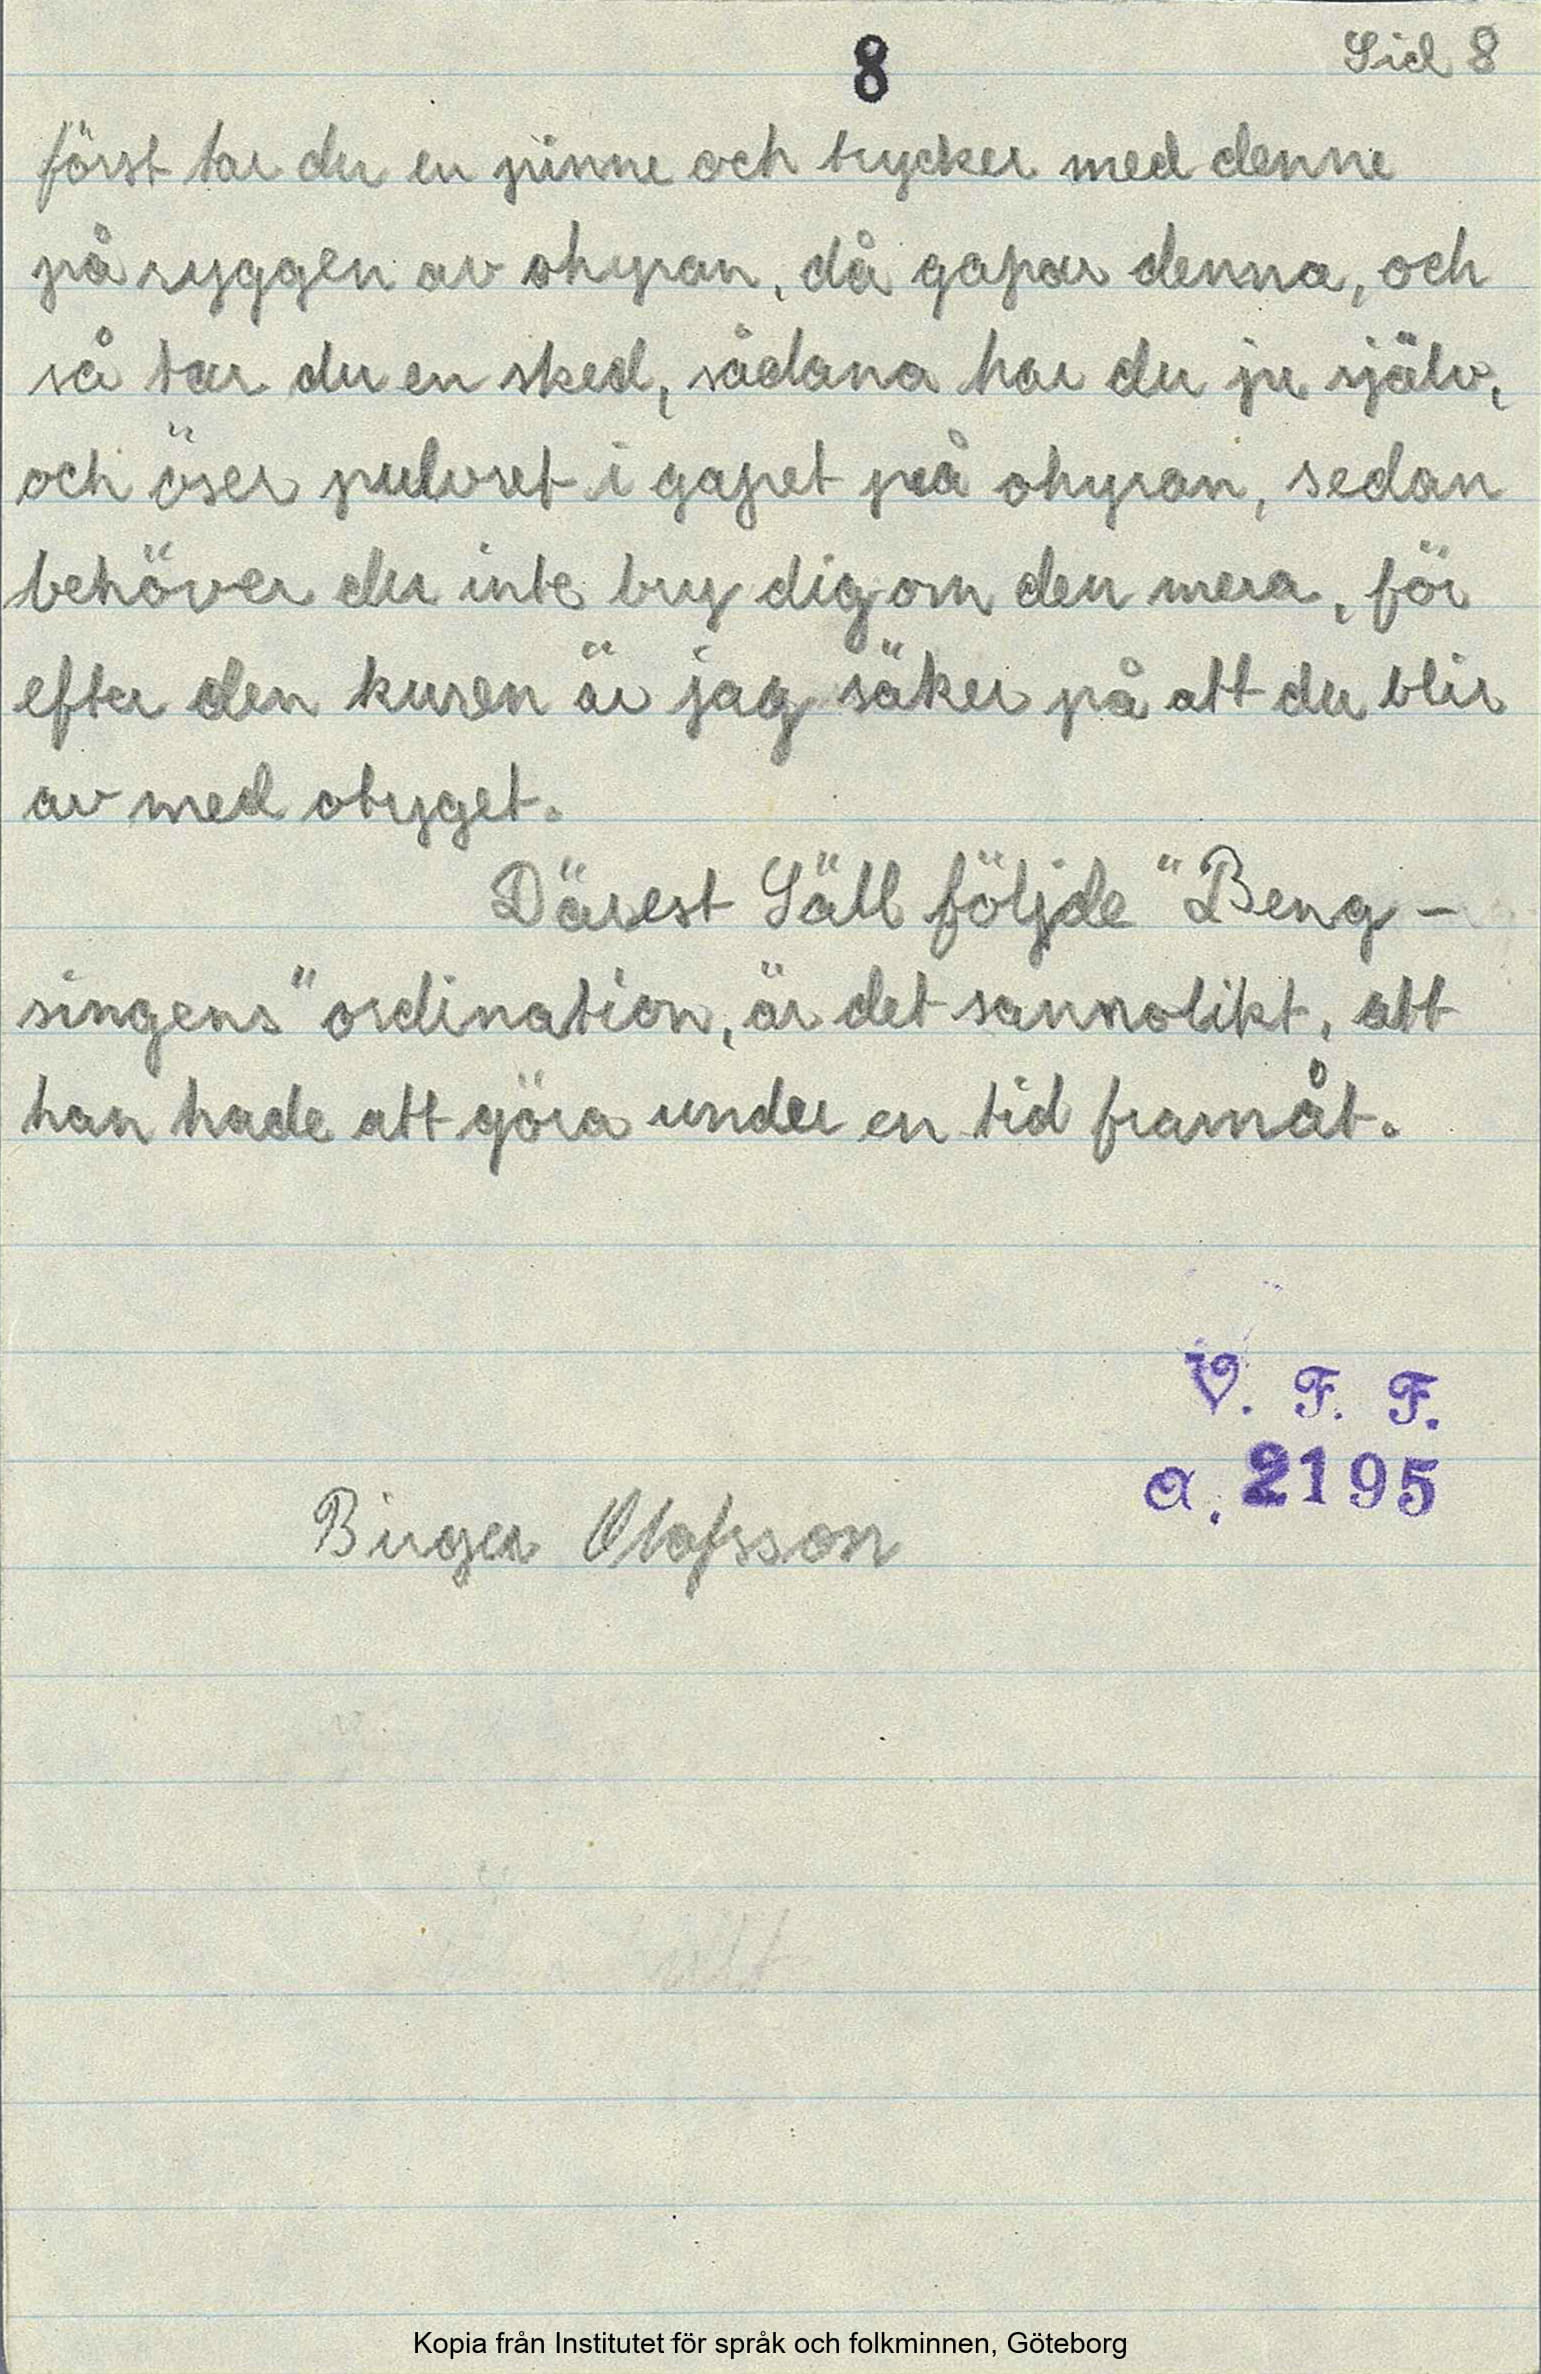 8
Sid 8
först tar du en pinne och trycker med denne
på ryggen av ohyran, då gapar denna, och
så tar du en sked, sådana har du ju själv,
och öser pulvret i gapet på ohyran, sedan
behöver du inte bry dig om den mera, för
efter den kuren är jag säker på att du blir
av med otyget.
Därest Säll följde "Beng-
singens" ordination, är det sannolikt, att
han hade att göra under en tid framåt.
V. F. F.
a. 2195
Birger Olofsson
Kopia från Institutet för språk och folkminnen, Göteborg